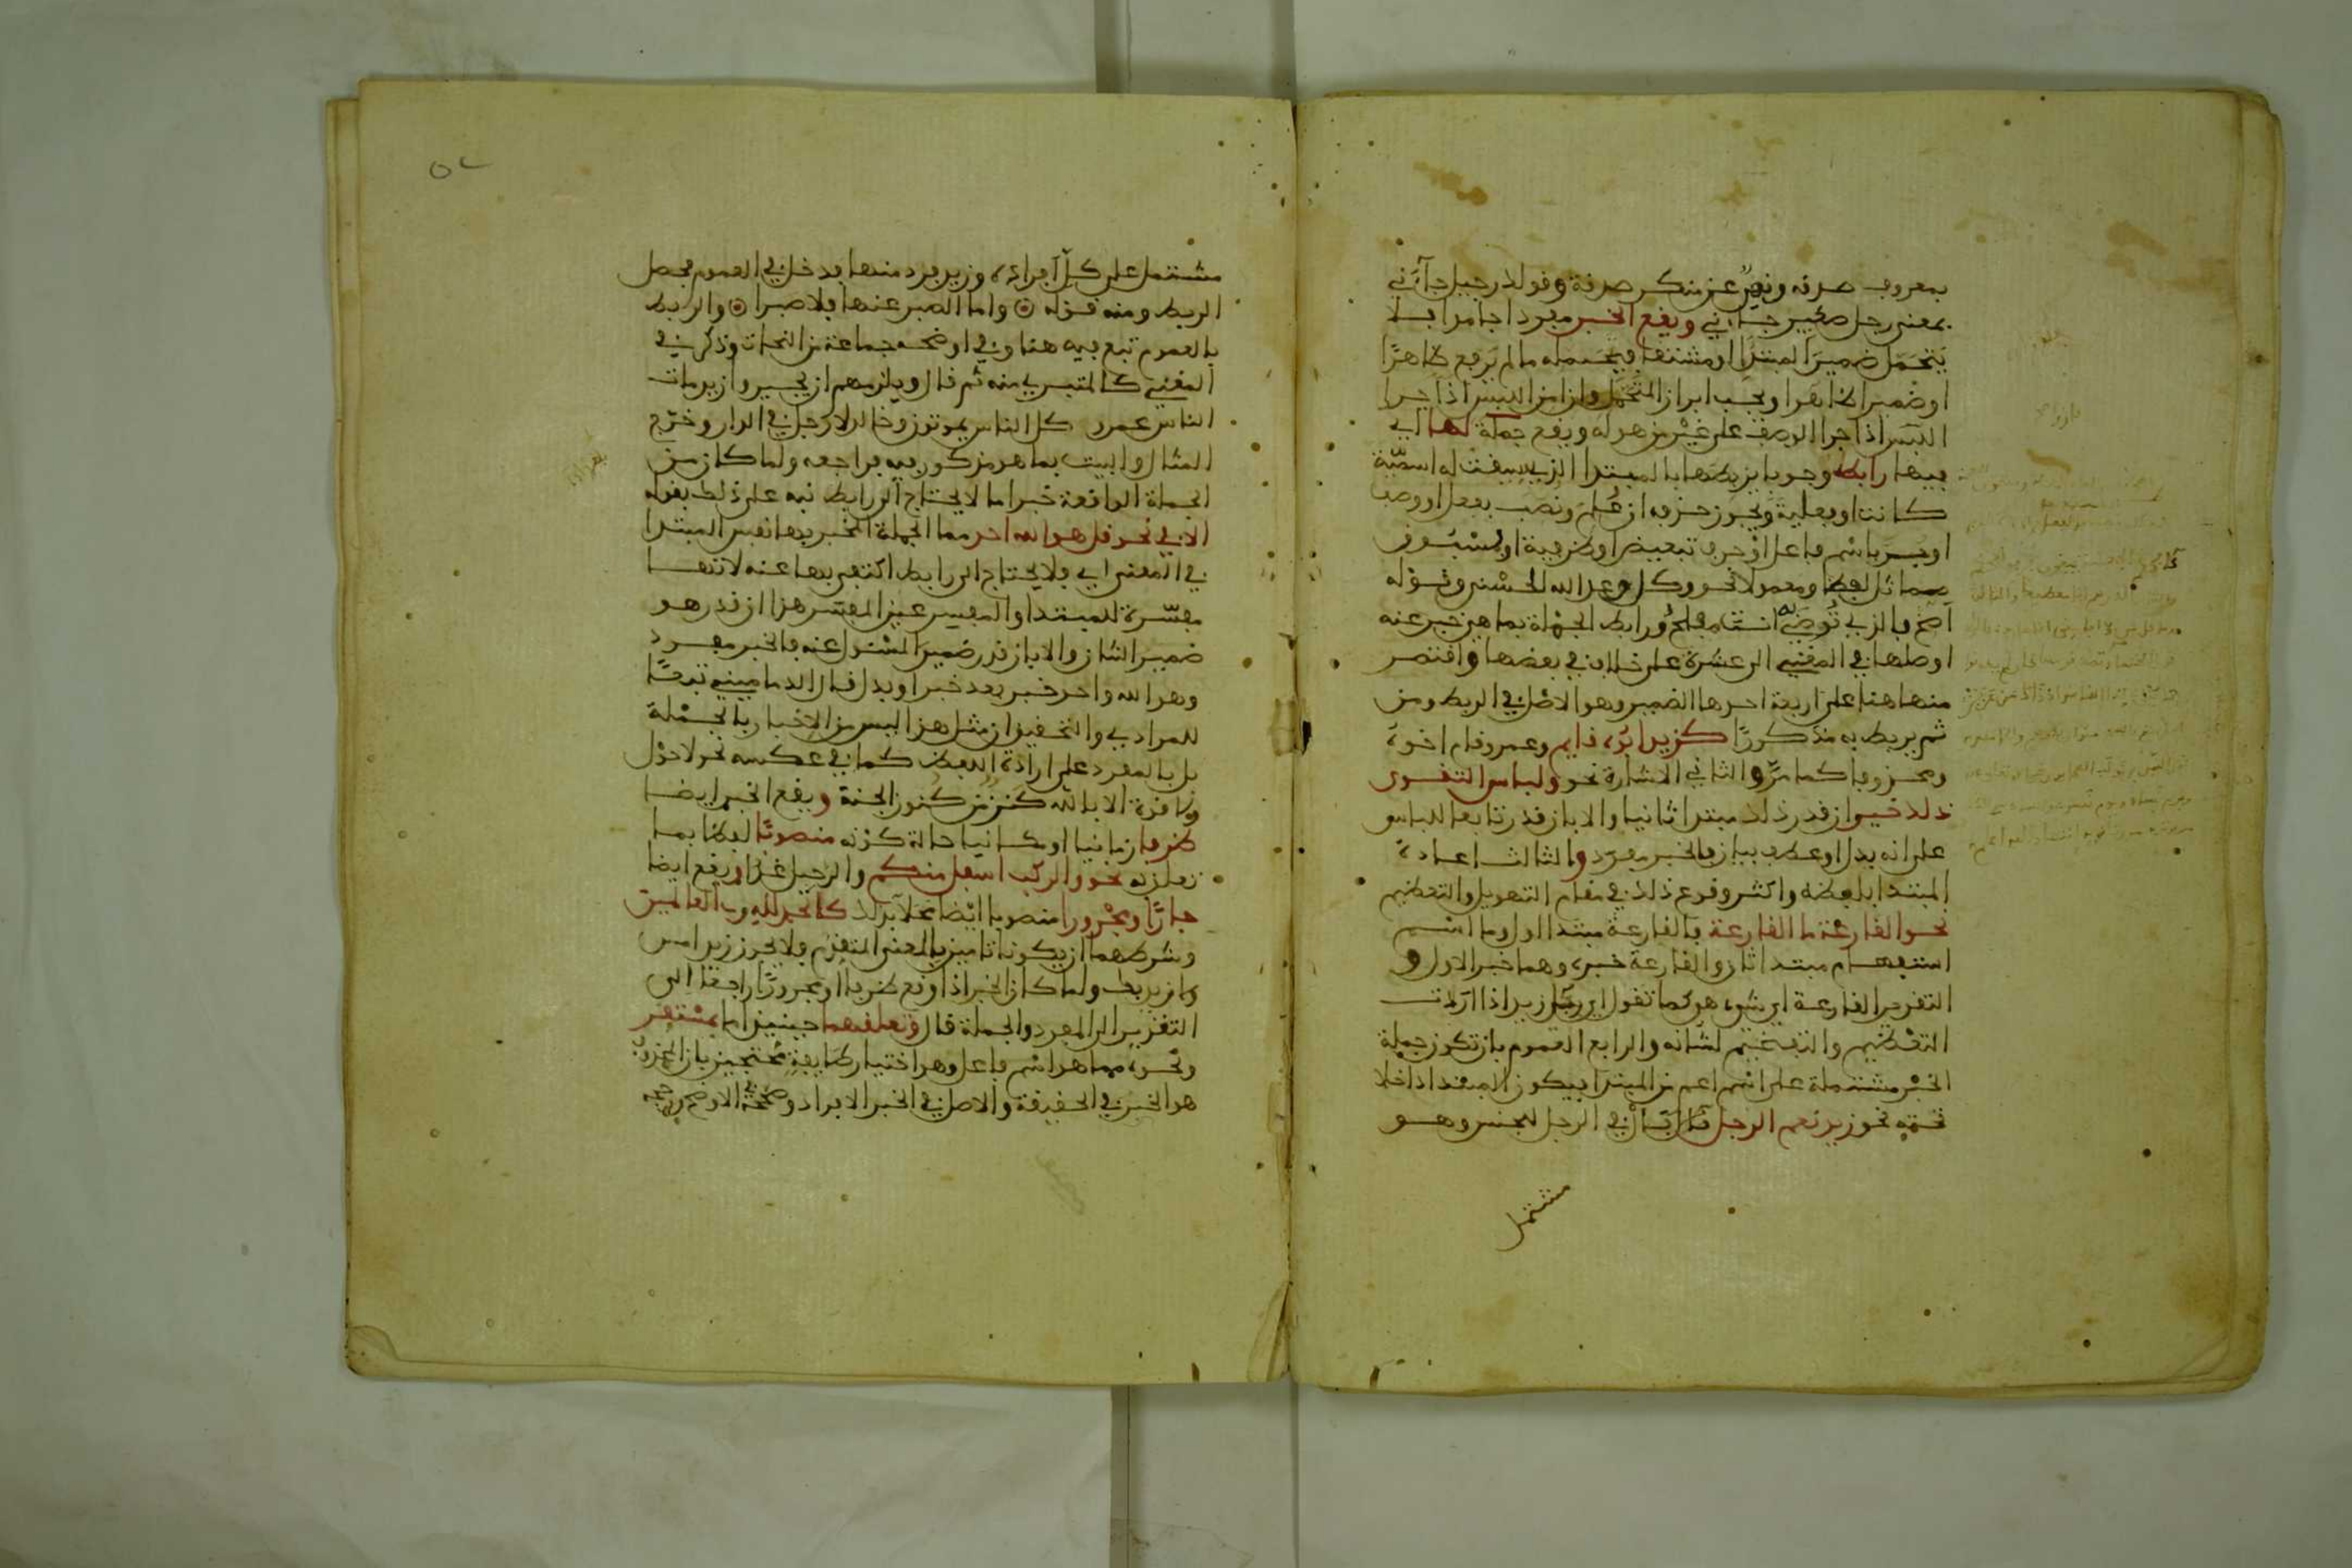 بمعروف صدقة ونهي عن منكر صدقة وقولك رجيل جاءني
بمعنى رجل صغير جاءني ويقع الخبر مفردا جامدا فلا
يتحمل ضمير المبتدا او مشتقا فيتحمله ما لم يرفع ظاهرا
او ضميرا ظاهرا ويجب ابراز المتحمل وان امن اللبس اذا جرا
اللبس اذا جرا الوصف على غير من هو له ويقع جملة لها اي
فيها رابط وجوبا يربطها بالمبتدا الذي سيقت له اسمية
كانت او فعلية ويجوز حذفه ان علم ونصب بفعل او وصف
او جر باسم فاعل او حرف تبعيض او ظرفية او بمسبوق
مماثل لفظا ومعمولا نحو وكل وعد الله الحسنى وقوله
اصخ فالذي توصي به انت مفلح ورابط الجملة بما هي خبر عنه
اوصلها في المغني الى عشرة على خلاف في بعضها واقتصر
منها هنا على اربعة احدها الضمير وهو الاصل في الربط ومن
ثم يربط به مذكورا كزيد ابوه قايم وعمرو قام اخوه
ومحذوفا كما مر والثاني الاشارة نحو ولباس التقوى
ذلك خير ان قدر ذلك مبتدا ثانيا والا بان قدر تابعا للباس
على انه بدل او عطف بيان فالخبر مفرد والثالث اعادة
المبتدا بلفظه واكثر وقوع ذلك في مقام التهويل والتعظيم
نحو القارعة ما القارعة فالقارعة مبتدا اول وما اسم
استفهام مبتدا ثان والقارعة خبره وهما خبر الاول و
التقدير القارعة اي شيء هو كما تقول اي رجل زيد اذا اردت
التعظيم والتفخيم لشانه والرابع العموم بان تكون جملة
الخبر مشتملة على اسم اعم من المبتدا فيكون المبتدا داخلا
تحته نحو زيد نعم الرجل فال في الرجل للجنس وهو
مشتمل
مشتمل على كل افراده وزيد فرد منها فدخل في العموم فحصل
الربط ومنه قوله ⊙ واما الصبر عنها فلا صبرا ⊙ والربط
بالعموم تبع فيه هنا وفي اوضحه جماعة من النحات وذكره في
المغني كالمتبري منه ثم قال ويلزمهم ان يجيزوا زيد مات
الناس عمرو كل الناس يموتون وخالد لا رجل في الدار وخرج
المثال والبيت بما هو مذكور فيه فراجعه ولما كان من
الجملة الواقعة خبرا ما لا يحتاج الى رابط نبه على ذلك بقوله
الا في نحو قل هو الله احد مما الجملة المخبر بها نفس المبتدا
في المعنى اي فلا يحتاج الى رابط اكتفى بها عنه لانها
مفسرة للمبتدا والمفسر عين المفسر هذا ان قدر هو
ضمير الشان والا بان قدر ضمير المسئول عنه فالخبر مفرد
وهو الله واحد خبر بعد خبر او بدل قال الدماميني تبعا
للمرادي والتحقيق ان مثل هذا ليس من الاخبار بالجملة
بل بالمفرد على ارادة اللفظ كما في عكسه نحو لا حول
ولا قوة الا بالله كنز من كنوز الجنة ويقع الخبر ايضا
ظرفا زمانيا او مكانيا حالة كونه منصوبا لفظا بما
تعلق به نحو والركب اسفل منكم والرحيل غدا ويقع ايضا
جارا ومجرورا منصوبا ايضا محلا بذلك كالحمد لله رب العالمين
وشرطهما ان يكونا تامين بالمعنى المتقدم فلا يجوز زيد امس
ولا زيد بك ولما كان الخبر اذا وقع ظرفا او مجرورا راجعا الى
التقدير الى المفرد والجملة قال وتعلقهما حينئذ اما بمستقر
ونحوه مما هو اسم فاعل وهو اختيار طايفة محتجين بان المحذوف
هو الخبر في الحقيقة والاصل في الخبر الافراد وصححه في الاوضح ورجحه